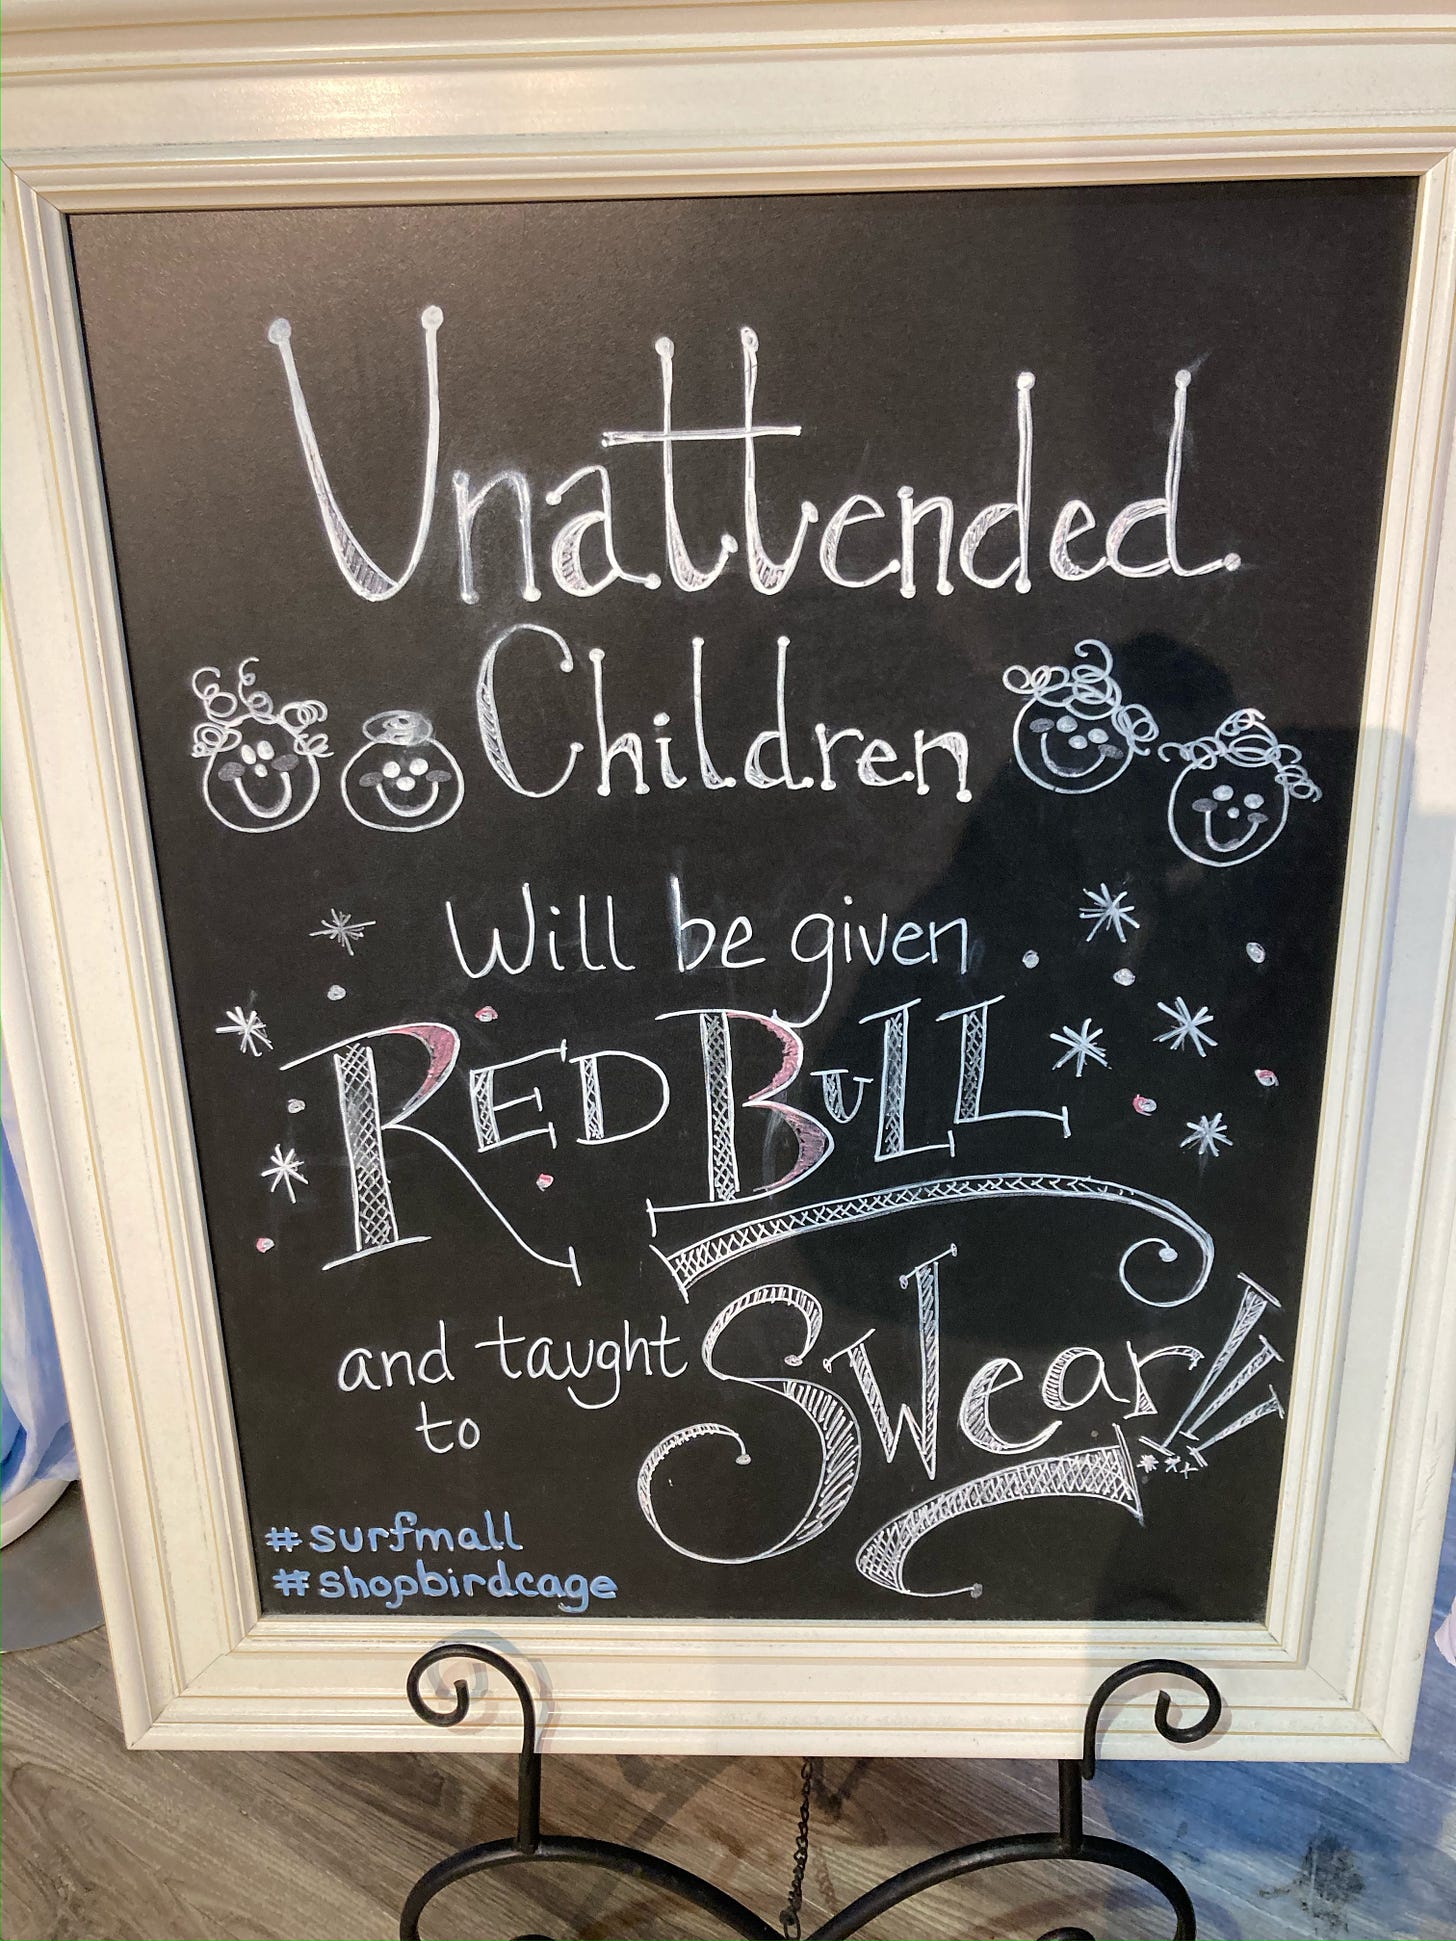 Unattended
Children
Will be given
RED BULL
and taught
to Swear!!!
#surfmall
#shopbirdcage